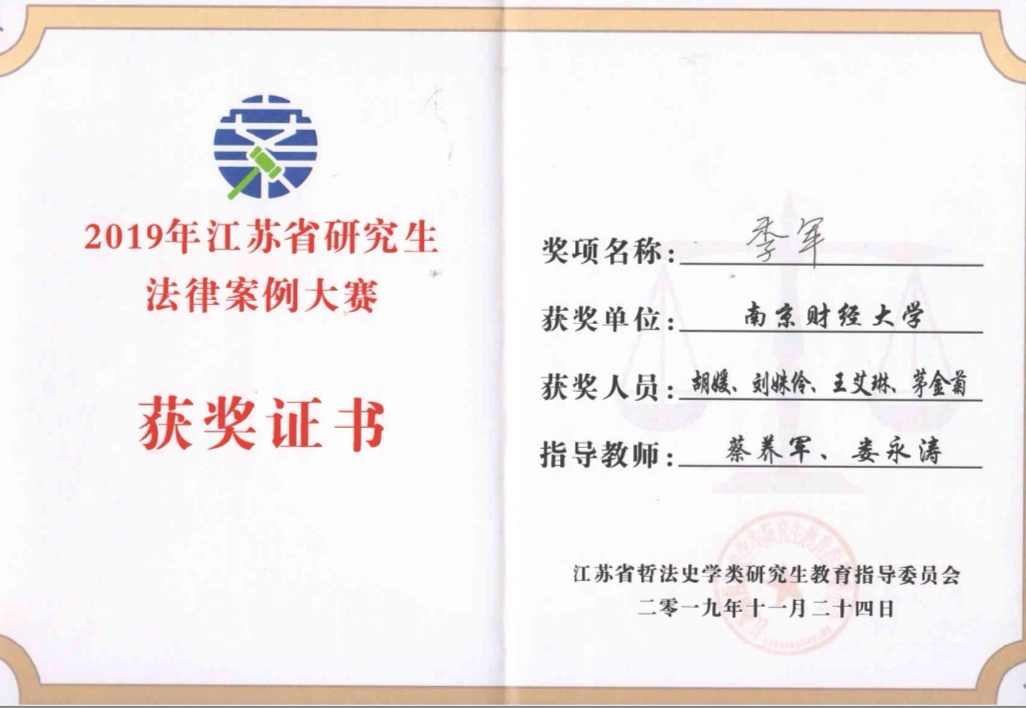 2019年江苏省研究生
法律案例大赛
获奖证书
奖项名称:季军
获奖单位:南京财经大学
获奖人员:胡媛、刘姝伶、王艾琳、茅金菊
指导教师:蔡养军、娄永涛
江苏省哲法史学类研究生教育指导委员会
二零一九年十一月二十四日